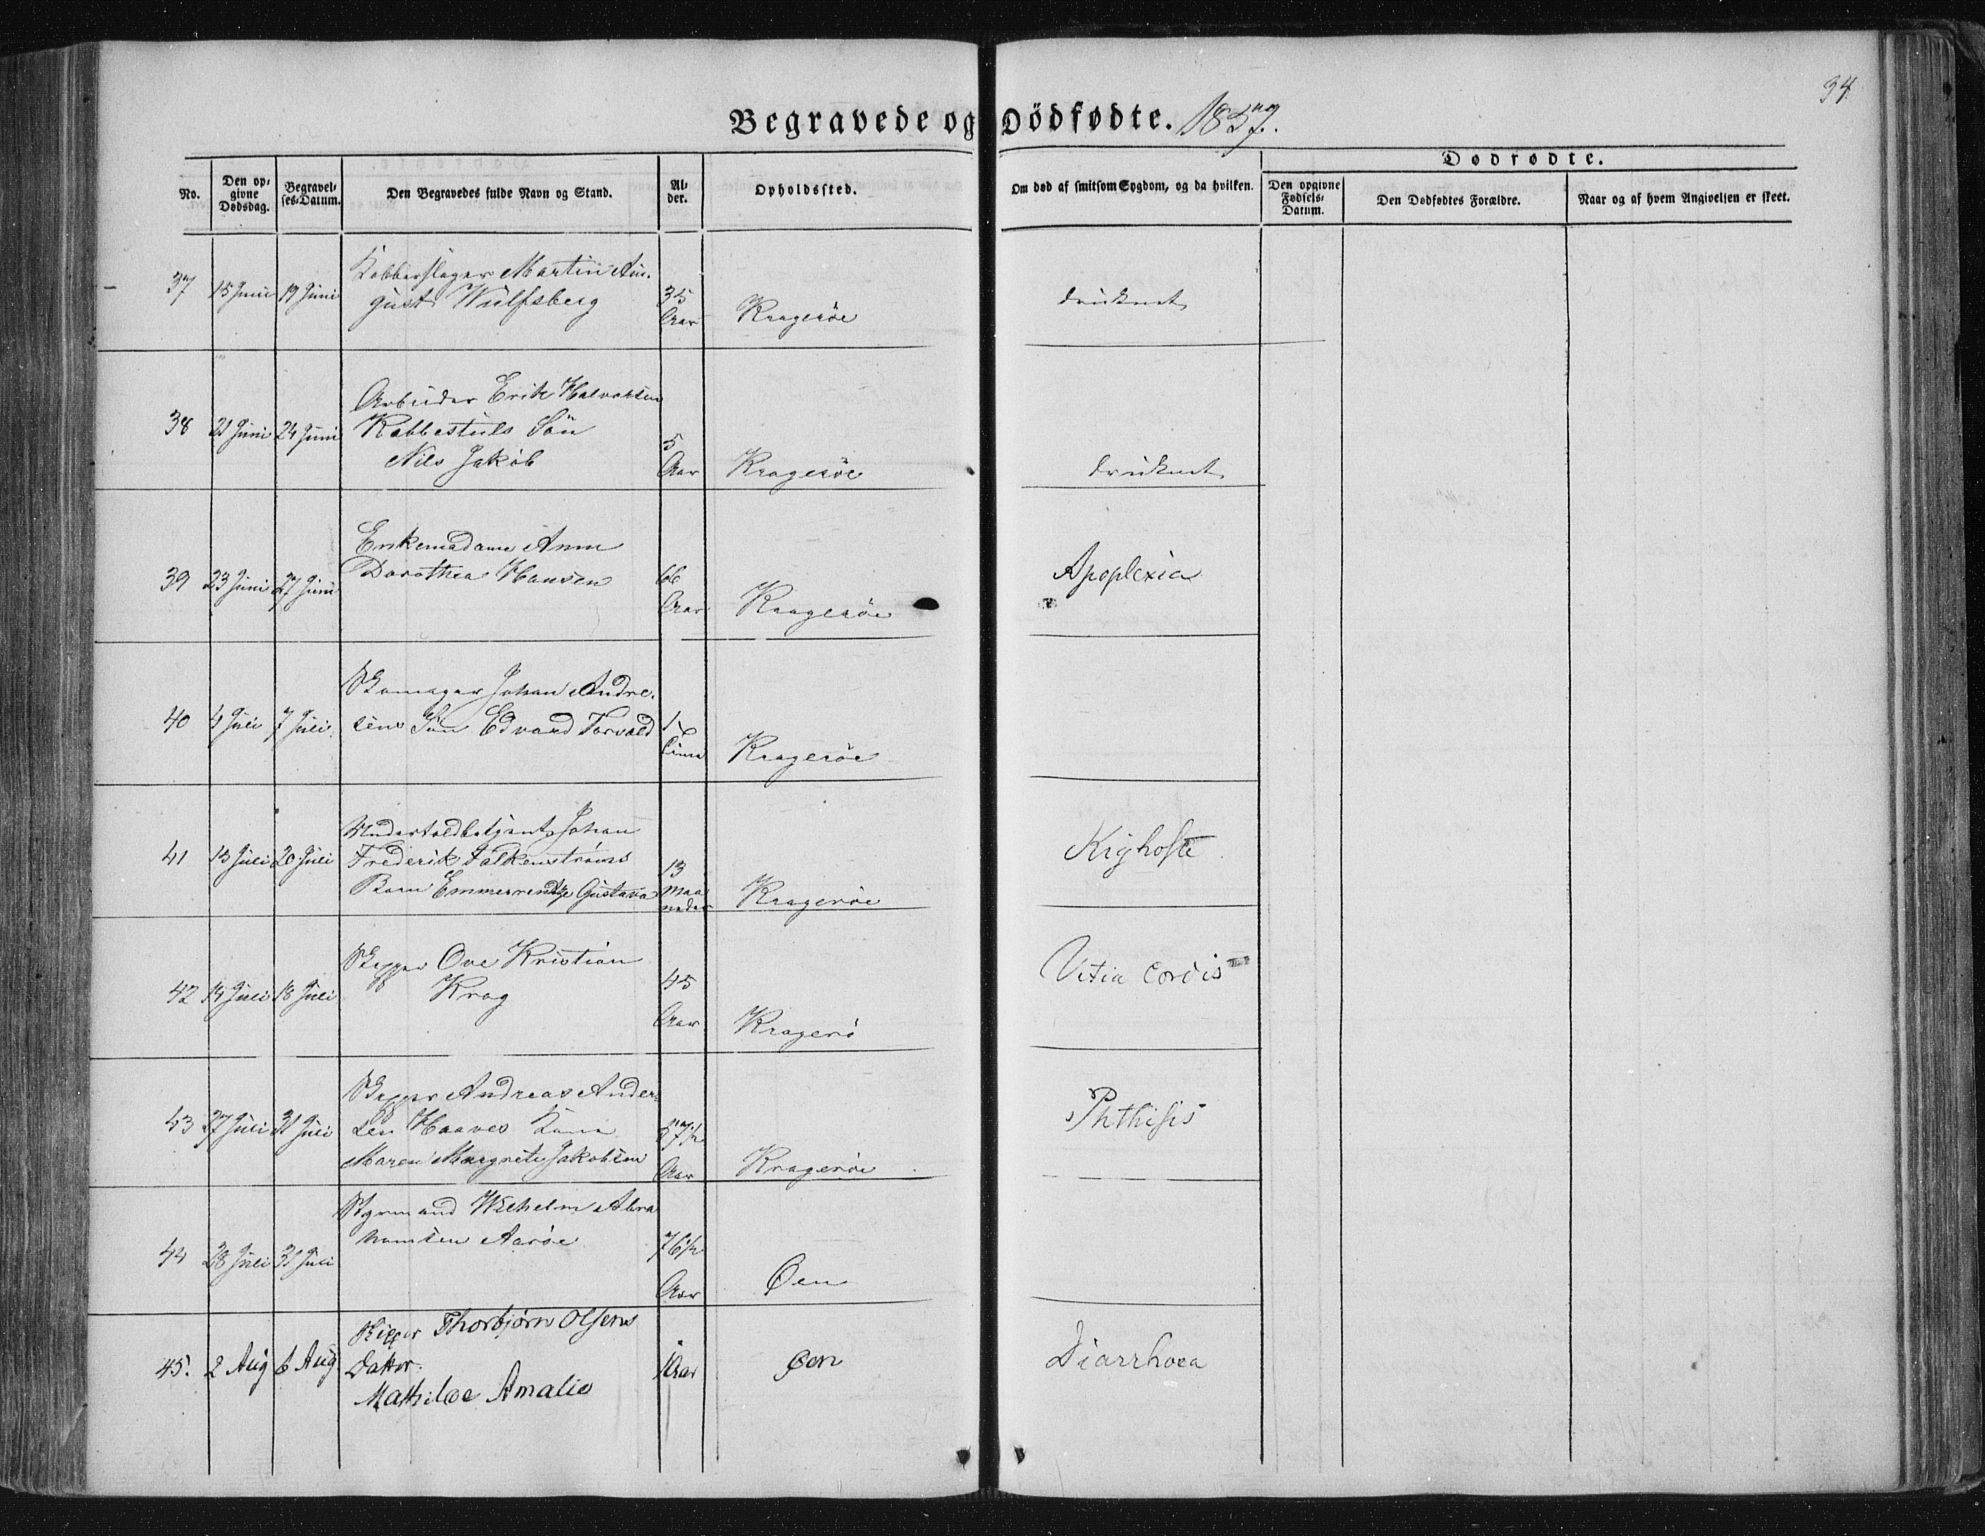 94
Begravede og Dödfødte. 1857.
Dødfødte.
No.
Den opgivne Dødsdag.
Begravelses-Datum.
Den Begravedes fulde Navn og Stand.
Alder.
Opholdssted.
Om død af smitsom Sygdom, og da hvilken.
Den opgivne Fødsels-Datum.
Den Dødfødtes Forældre.
Naar og af hvem Angivelsen er skeet.
37 15 Juni 19 Juni Kobberslager Martin Au-
gust Wulfsberg 35 Aar Kragerøe druknet
38 21 Juni 24 Juni Arbeider Erik Halvorsen
Kabbestuls Sön
Nils Jakob 5 Aar Kragerøe druknet
39 23 Juni 27 Juni Enkemadame Anne
Dorothea Hansen 66 Aar Kragerøe Apoplexia
40 4 Juli 7 Juli Skomager Johan Andre-
sens Sön Edvard Torvald 1 Kragerøe
41 13 Juli 20 Juli Undertoldbetjent Johan
Frederik Falkenstrøms
Barn Emmerentze Gustava 13 Maaneder Kragerøe Kighoste
42 14 Juli 18 Juli Skipper Ove Kristian
Krag 45 Aar Kragerø Vitia cordis
43 27 Juli 31 Juli Skipper Andreas Ander-
sen Haaves Kone
Maren Margrete Jakobsen Aar Kragerøe Phthisis
44 28 Juli 31 Juli Styrmand Wilhelm Abra
hamsen Aarøe 76½ Aar Øen
45. 2 Aug 6 Aug Skipper Thorbjørn Olsens
Datter
Mathilde Amalie 1 Aar Øen Diarrhoea